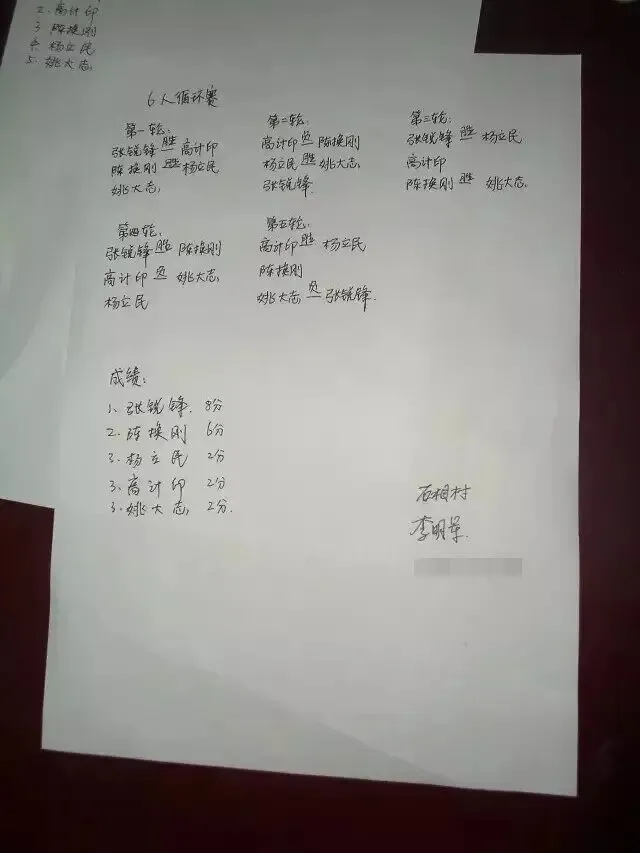 2. 高计印
3 陈换刚
4. 杨立民
5. 姚大志
6人循环赛
第一轮:
张锐锋 胜 高计印
陈换刚 胜 杨立民
姚大志
第二轮:
高计印 负 陈换刚
杨立民 胜 姚大志
张锐锋
第三轮:
张锐锋 胜 杨立民
高计印
陈换刚 胜 姚大志
第四轮:
张锐锋 胜 陈换刚
高计印 负 姚大志
杨立民
第五轮:
高计印 胜 杨立民
陈换刚
姚大志 负 张锐锋
成绩:
1、张锐锋 8分
2、陈换刚 6分
3、杨立民 2分
3、高计印 2分
3、姚大志 2分
石相村
李明军